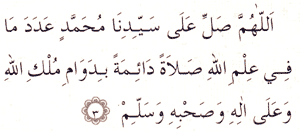 اَللّٰهُمَّ صَلِّ عَلَى سَيِّدِنَا مُحَمَّدٍ عَدَدَ مَا
فِي عِلْمِ اللهِ صَلَاةً دَائِمَةً بِدَوَامِ مُلْكِ اللهِ
وَعَلَى اٰلِهِ وَصَحْبِهِ وَسَلِّمْ ٣